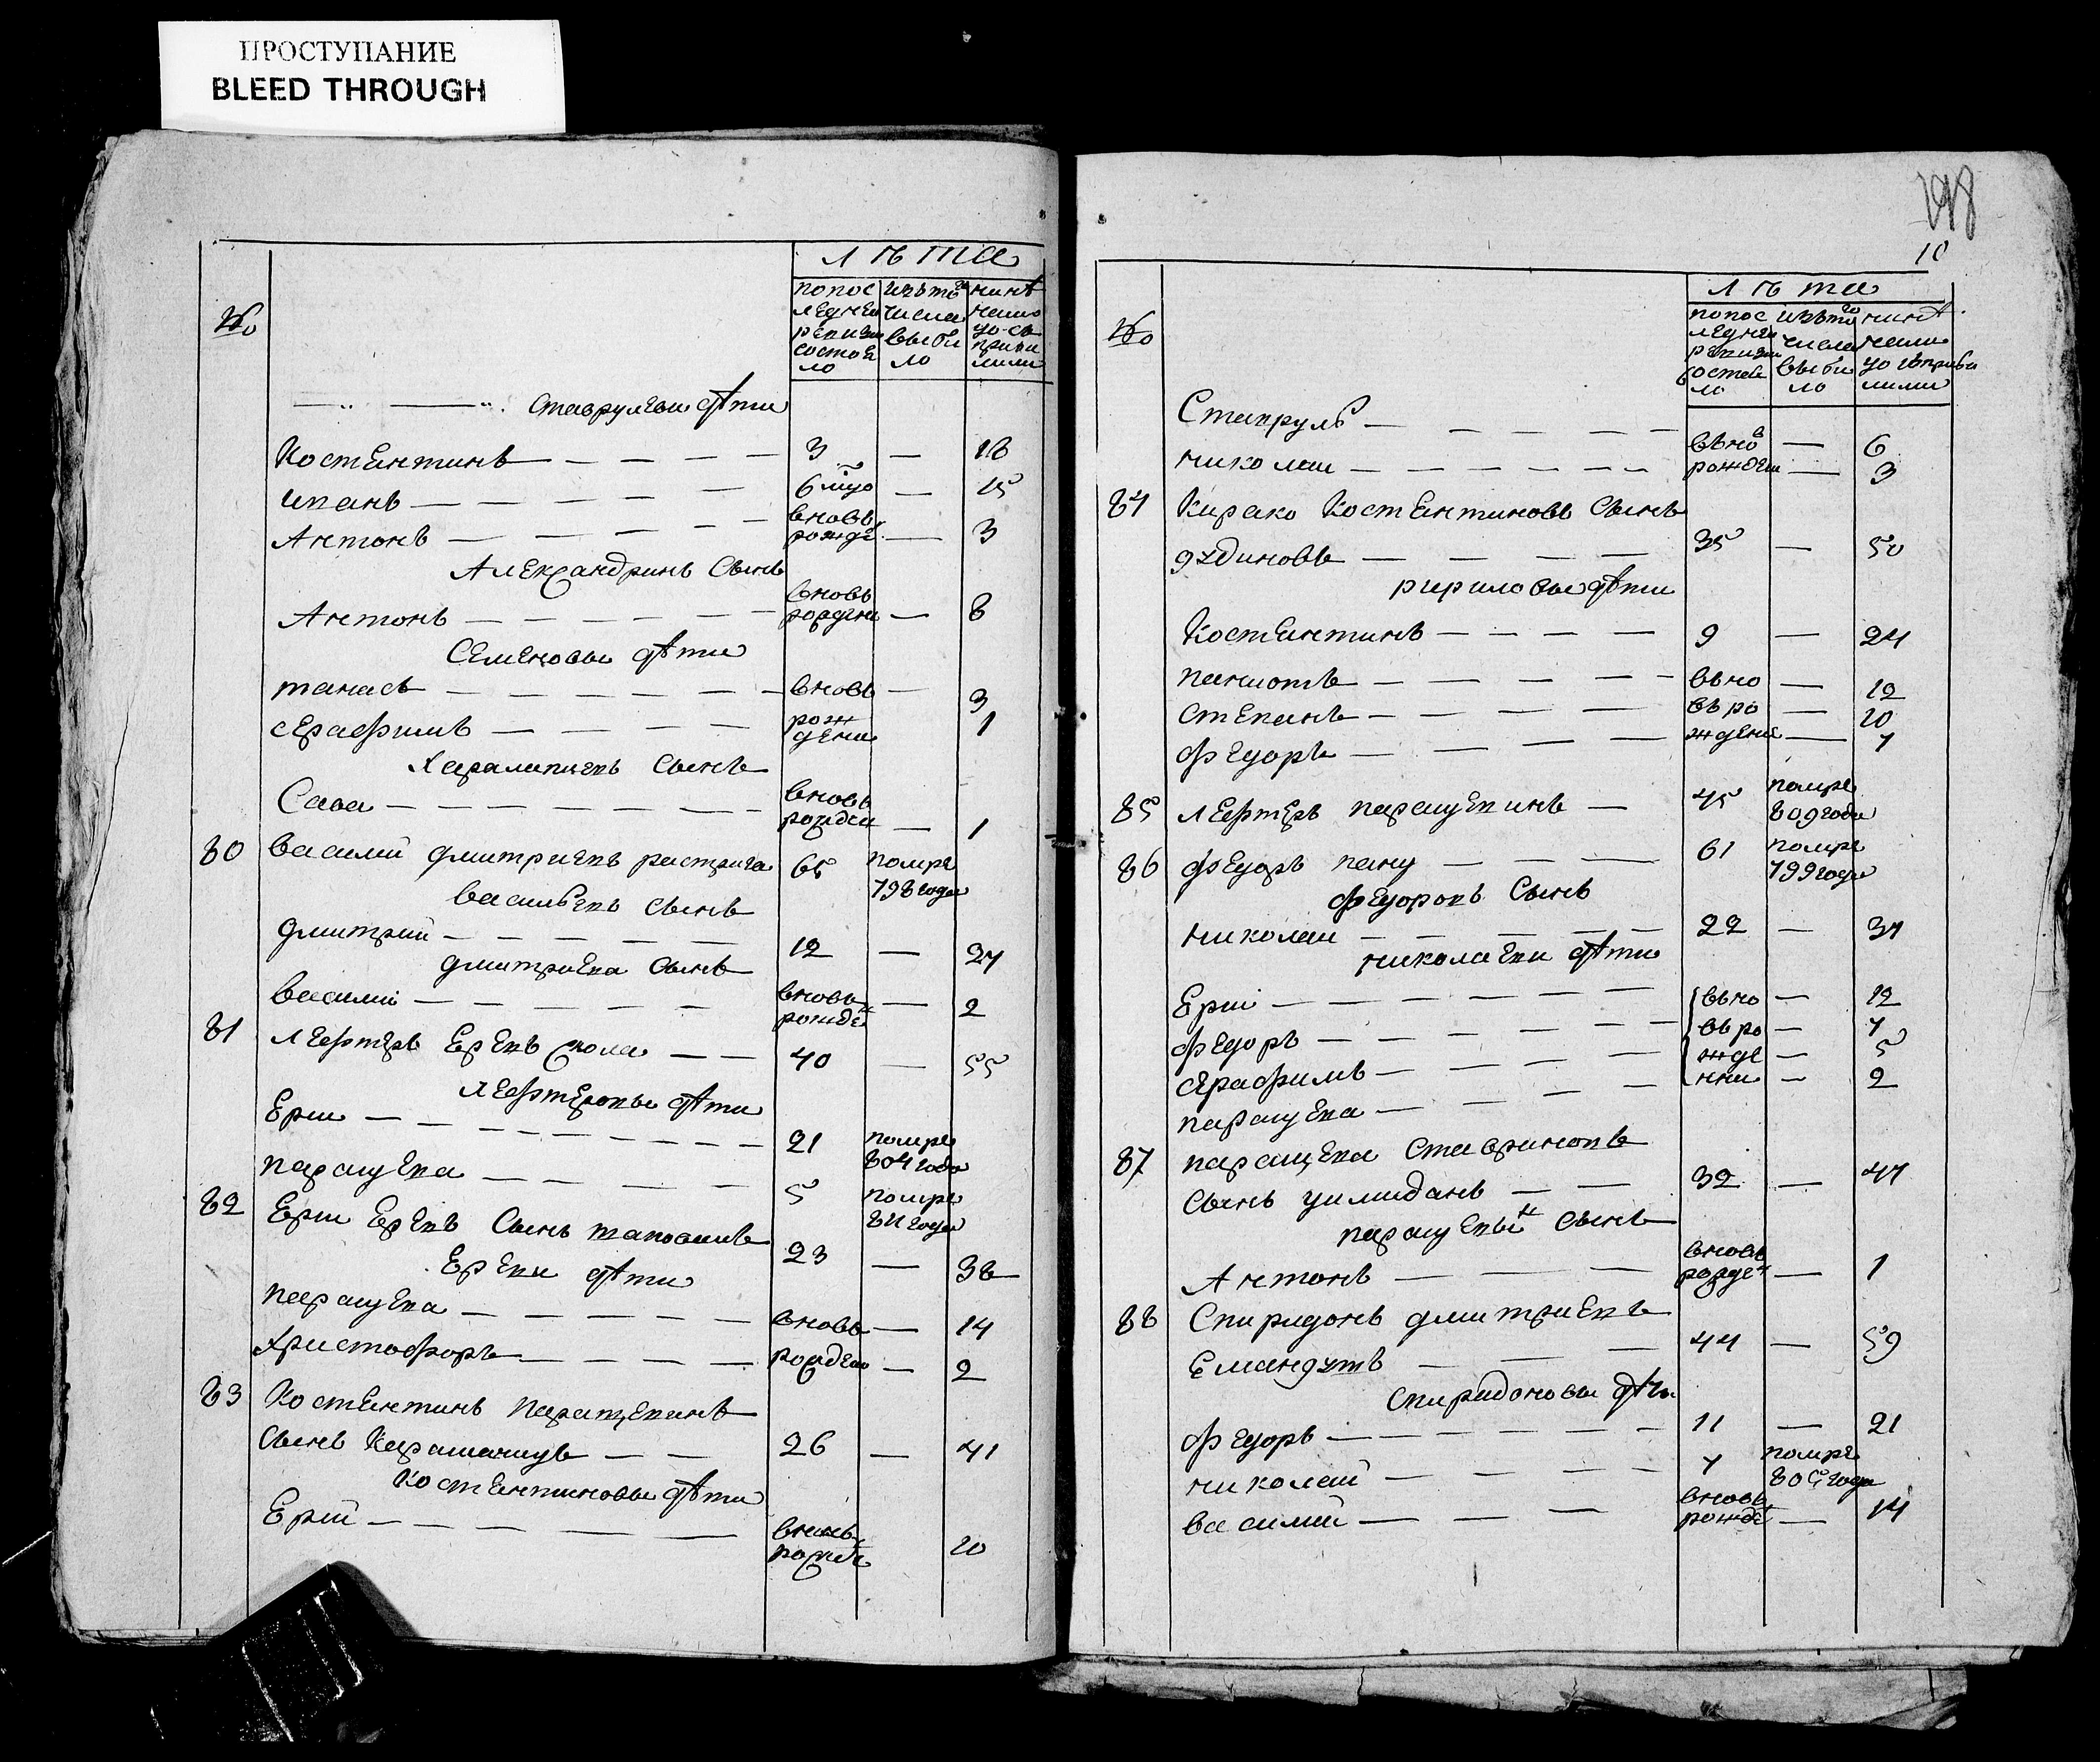 ПРОСТУПАНИЕ
BLEED THROUGH
Лѣта
№
попос ледней ревизии состоя ло
изъ того числа выбы ло
нинѣ нали цо
Ставрулевы дѣти
Костентинъ — 3 — 18
иванъ — 6 — 15
Антонъ — вновь рожде — 3
Александринъ Сынъ
Антонъ — вновь рожденъ — 8
Семеновы дѣти
танасъ — вновь — 3
серафимъ — рож дены 1
Харалампиевъ Сынъ
Сава — вновь рожден — 1
80 василий дмитриевъ растрига 65 помре 798 года
васильевъ Сынъ
дмитрий — 12 — 27
дмитриева Сынъ
василий — вновь рожде — 2
81 лефтеръ Еревъ — 40 — 55
лефтеровы дѣти
Ери — 21 помре 804 года
паращева — 5 помре 811 года
82 Ери Еревъ Сынъ 23 — 38
Ереви дѣти
паращева — вновь — 14
христофоръ — рождены — 2
83 Костентинъ паращевинъ
Сынъ — 26 — 41
Костентиновы дѣти
Ерий — вновь рожде 10
198
10
Лѣта
№
попос ледней ревизии состоя ло
изъ того числа выбы ло
нинѣ нали цо
Ставруль — вьнов — 6
николаи — рождени — 3
84 Кирако Костентиновъ Сынъ
35 — 50
кириловы дѣти
Костентинъ — 9 — 24
панаиотъ — вьно — 12
степанъ — въ ро — 10
федоръ — ждены — 7
85 лефтеръ паращевинъ — 45 помре 809 года
86 федоръ пану — 61 помре 799 года
федоровъ Сынъ
николаи — 22 — 37
николаеви дѣти
Ери — вьно — 12
федоръ — въ ро — 7
серафимъ — жде — 5
паращева — нни — 2
87 паращева Ставриновъ
Сынъ — 32 — 47
паращевы Сынъ
Антонъ — вновь рожден — 1
88 Спиридонъ дмитриевъ
44 — 59
Спиридоновы дѣти
федоръ — 11 — 21
николай — 7 помре 805 года
василий — вновь рожде — 14